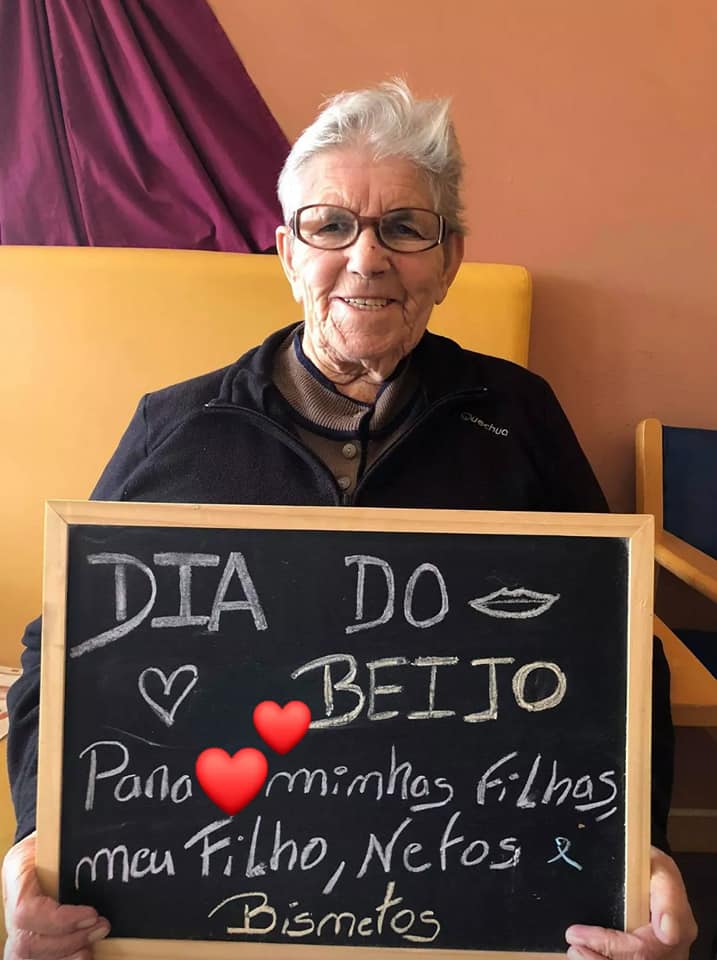 Quechua
DIA DO
BEIJO
Para minhas Filhas,
meu Filho, Netos
Bisnetos